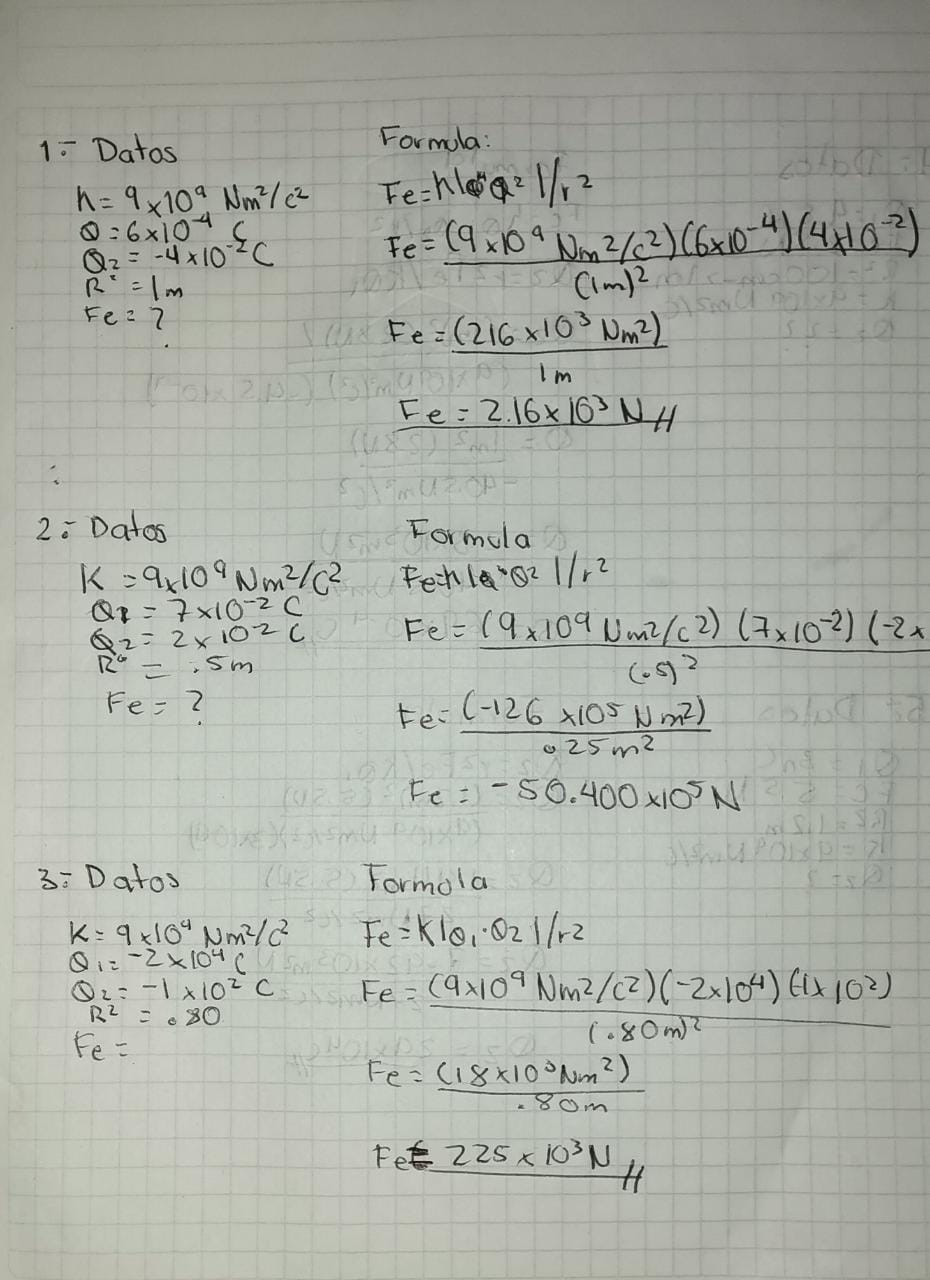 1:- Datos
K= 9x10⁹ Nm²/c²
Q=6x10⁻⁴ C
Q₂ = -4x10⁻²C
R² = 1m
Fe= ?
Formula:
Q² 1/r²
Fe= (9x10⁹ Nm²/c²)(6x10⁻⁴)(4x10⁻²)
(1m)²
Fe = (216 x10³ Nm²)
1m
Fe = 2.16x10³ N //
2:- Datos
K = 9x10⁹ Nm²/C²
Q1 = 7x10⁻² C
Q₂ = 2x10⁻² C
= .5m
Fe = ?
Formula
Q² 1/r²
Fe = (9x10⁹ Nm²/c²) (7x10⁻²) (-2x
(.5)²
Fe= (-126 x10⁵ Nm²)
.25m²
Fe = -50.400x10⁵ N
3:- Datos
K= 9x10⁹ Nm²/C²
Q₁= -2x10⁴ C
Q₂= -1x10² C
R² = .80
Fe =
Formola
Fe=K|Q₁·Q₂ 1/r²
Fe = (9x10⁹ Nm²/c²)(-2x10⁴)(-1x10²)
(.80m)²
Fe = (18x10³Nm²)
.80m
Fe= 225x10³N //